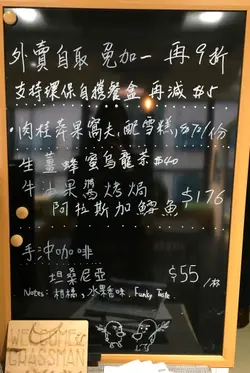 外賣自取 免加一 再9折
支持環保自攜餐盒 再減 $5
•肉桂苹果窩夫,配雪糕,$72/份
生薑蜂蜜烏龍茶 $40
牛油果醬烤焗
阿拉斯加鰹魚 $176
手沖咖啡
坦桑尼亞 $55/杯
Notes: 柑橘, 水果香味, Funky Taste
WELCOME to
GRASSMAN